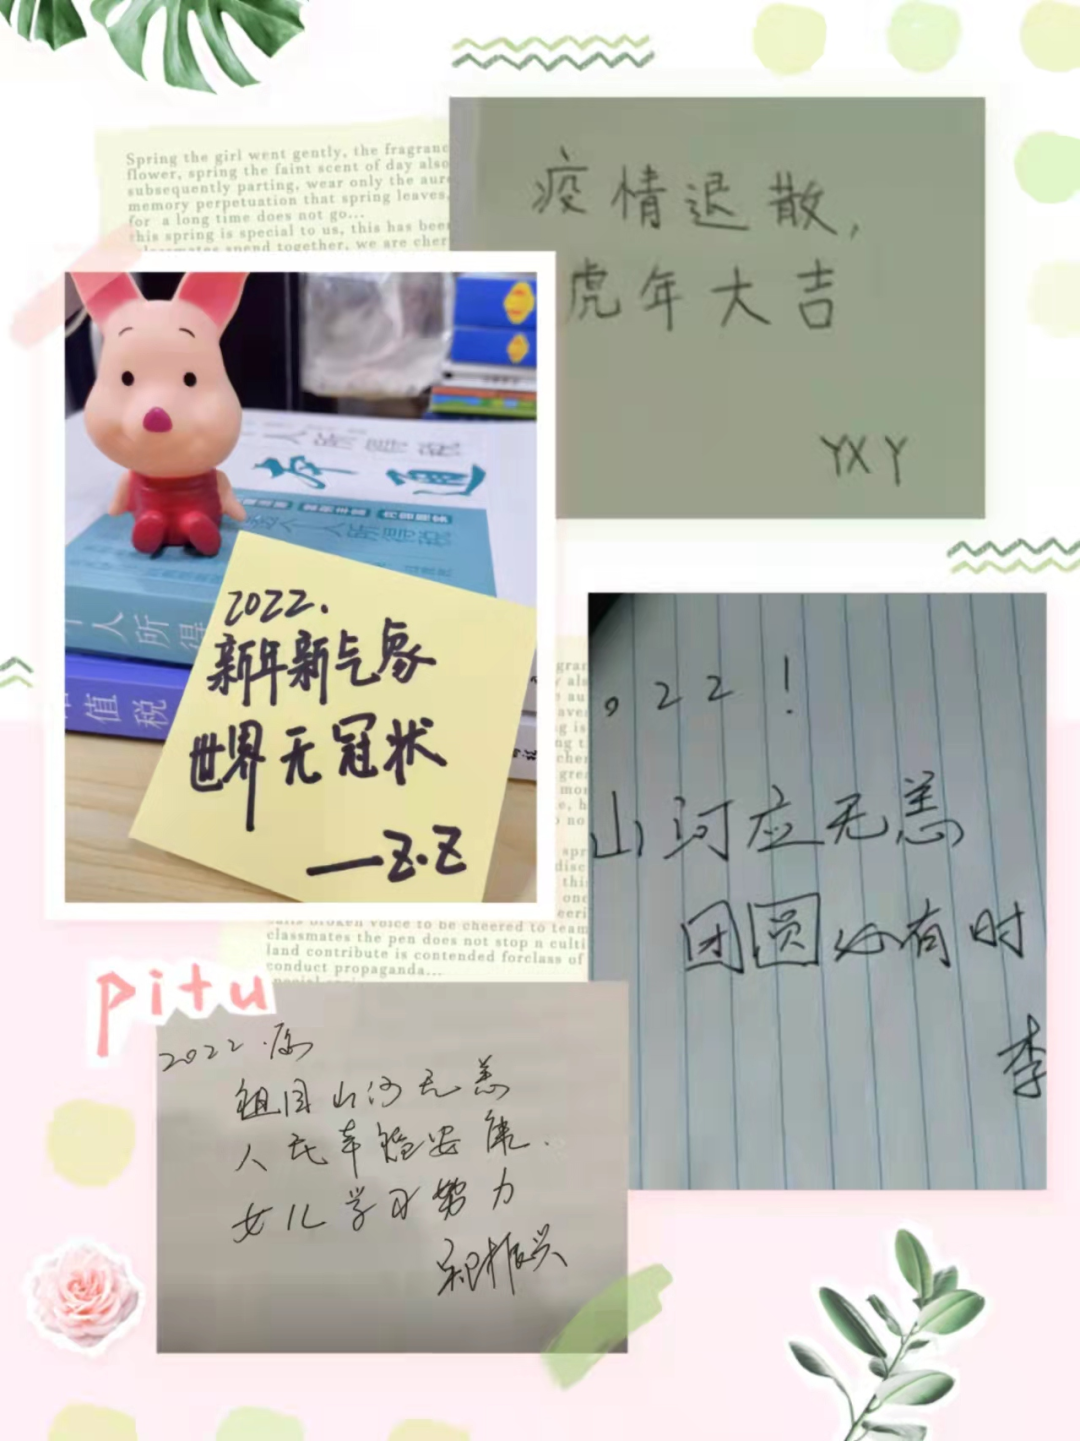 Spring the girl went gently, the fragranc
flower, spring the faint scent of day also
subsequently parting, wear only the aur
memory perpetuation that spring leaves,
for a long time does not go...
this spring is special to us, this has been
classmates spend together, we are cher
疫情退散,
虎年大吉
YXY
人所得税
人所得税
值税
2022.
新年新气象
世界无冠状
—Z.Z
022!
山河应无恙
团圆必有时
李
broken voice to be cheered to team
classmates the pen does not stop n culti
land contribute is contended forclass of
conduct propaganda...
pitu
2022.愿
祖国山河无恙
人民幸福安康.
女儿学习努力
振兴